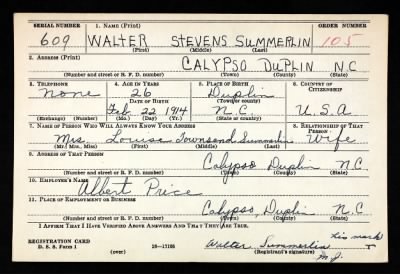 SERIAL NUMBER 1. NAME (Print) ORDER NUMBER
609 WALTER STEVENS SUMMERLIN 105
(First) (Middle) (Last)
2. ADDRESS (Print)
CALYPSO DUPLIN N.C
(Number and street or R. F. D. number) (Town) (County) (State)
3. TELEPHONE 4. AGE IN YEARS 5. PLACE OF BIRTH 6. COUNTRY OF CITIZENSHIP
None 26 Duplin
DATE OF BIRTH (Town or county)
Feb 22 1914 N.C. U.S.A
(Exchange) (Number) (Mo.) (Day) (Yr.) (State or country)
7. NAME OF PERSON WHO WILL ALWAYS KNOW YOUR ADDRESS 8. RELATIONSHIP OF THAT PERSON
Mrs. Louise Townsend Summerlin Wife
(Mr., Mrs., Miss) (First) (Middle) (Last)
9. ADDRESS OF THAT PERSON
Calypso Duplin N.C
(Number and street or R. F. D. number) (Town) (County) (State)
10. EMPLOYER'S NAME
Albert Price
11. PLACE OF EMPLOYMENT OR BUSINESS
Calypso, Duplin N.C
(Number and street or R. F. D. number) (Town) (County) (State)
I AFFIRM THAT I HAVE VERIFIED ABOVE ANSWERS AND THAT THEY ARE TRUE.
REGISTRATION CARD
D. S. S. Form 1 (over) 16-17105 Walter Summerlin his mark
(Registrant's signature)